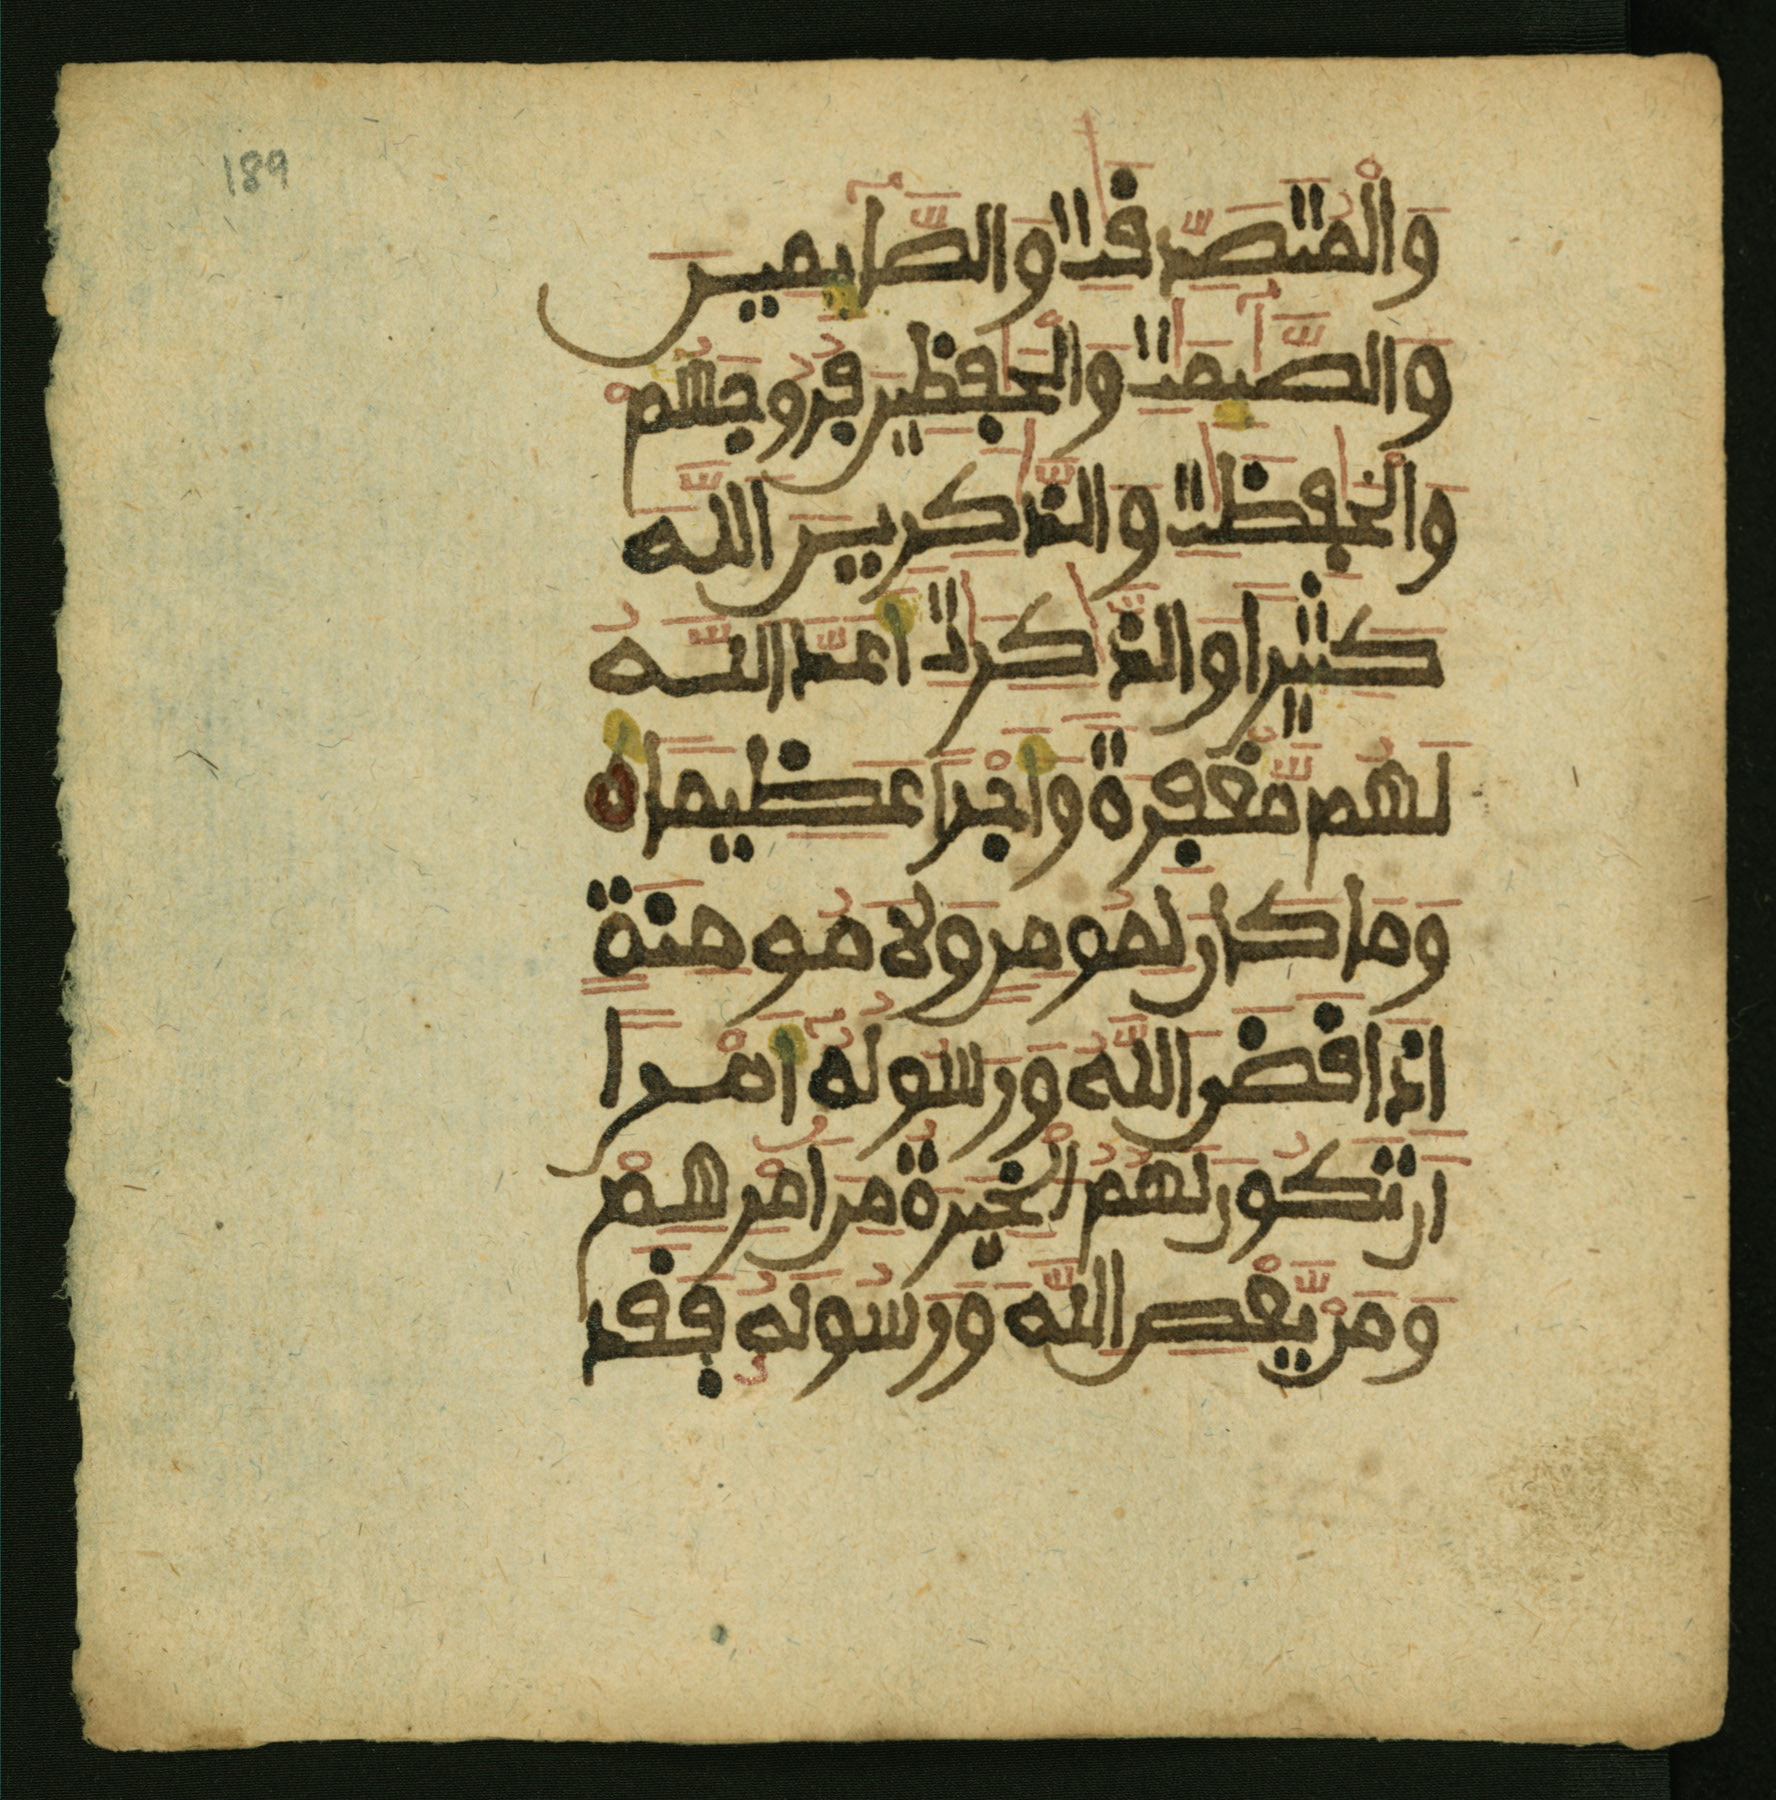 189
وَالْمُتَصَدِّقَٰتِ وَالصَّآئِمِينَ
وَالصَّٰٓئِمَٰتِ وَالْحَٰفِظِينَ فُرُوجَهُمْ
وَالْحَٰفِظَٰتِ وَالذَّٰكِرِينَ اللَّهَ
كَثِيرًا وَالذَّٰكِرَٰتِ أَعَدَّ اللَّهُ
لَهُم مَّغْفِرَةً وَأَجْرًا عَظِيمًا
وَمَا كَانَ لِمُومِنٍ وَلَا مُومِنَةٍ
إِذَا قَضَى اللَّهُ وَرَسُولُهُ أَمْرًا
أَن تَكُونَ لَهُمُ الْخِيَرَةُ مِنَ امْرِهِمْ
وَمَنْ يَّعْصِ اللَّهَ وَرَسُولَهُ فَقَد